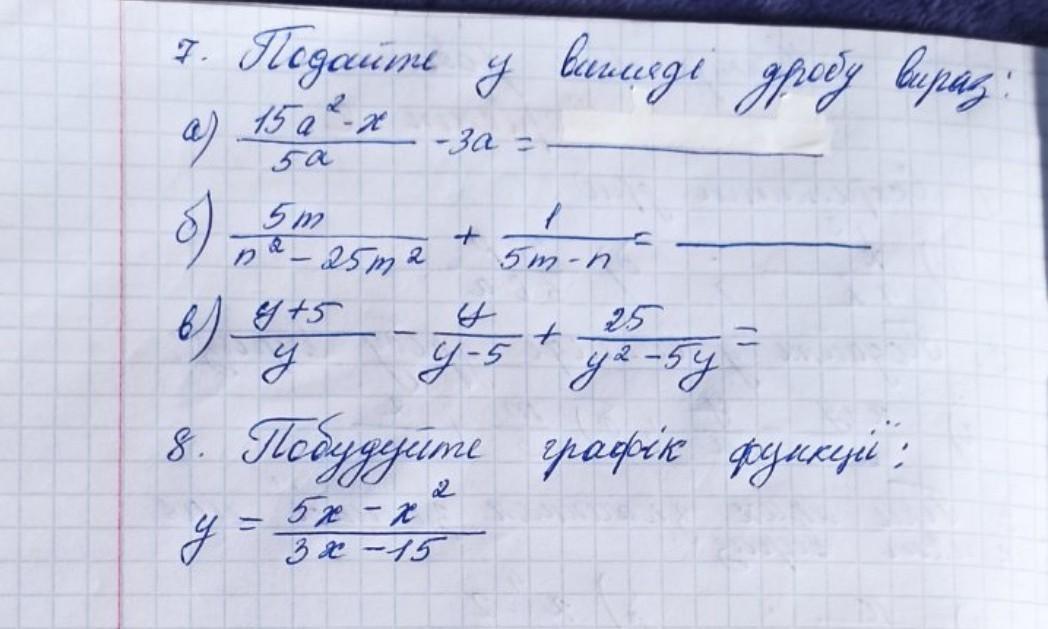 7. Подайте у вигляді дробу вираз:
а) (15a² - x)/(5a) - 3a = ____
б) 5m/(n² - 25m²) + 1/(5m - n) = ____
в) (y+5)/y - y/(y-5) + 25/(y² - 5y) =
8. Побудуйте графік функції:
y = (5x - x²)/(3x - 15)